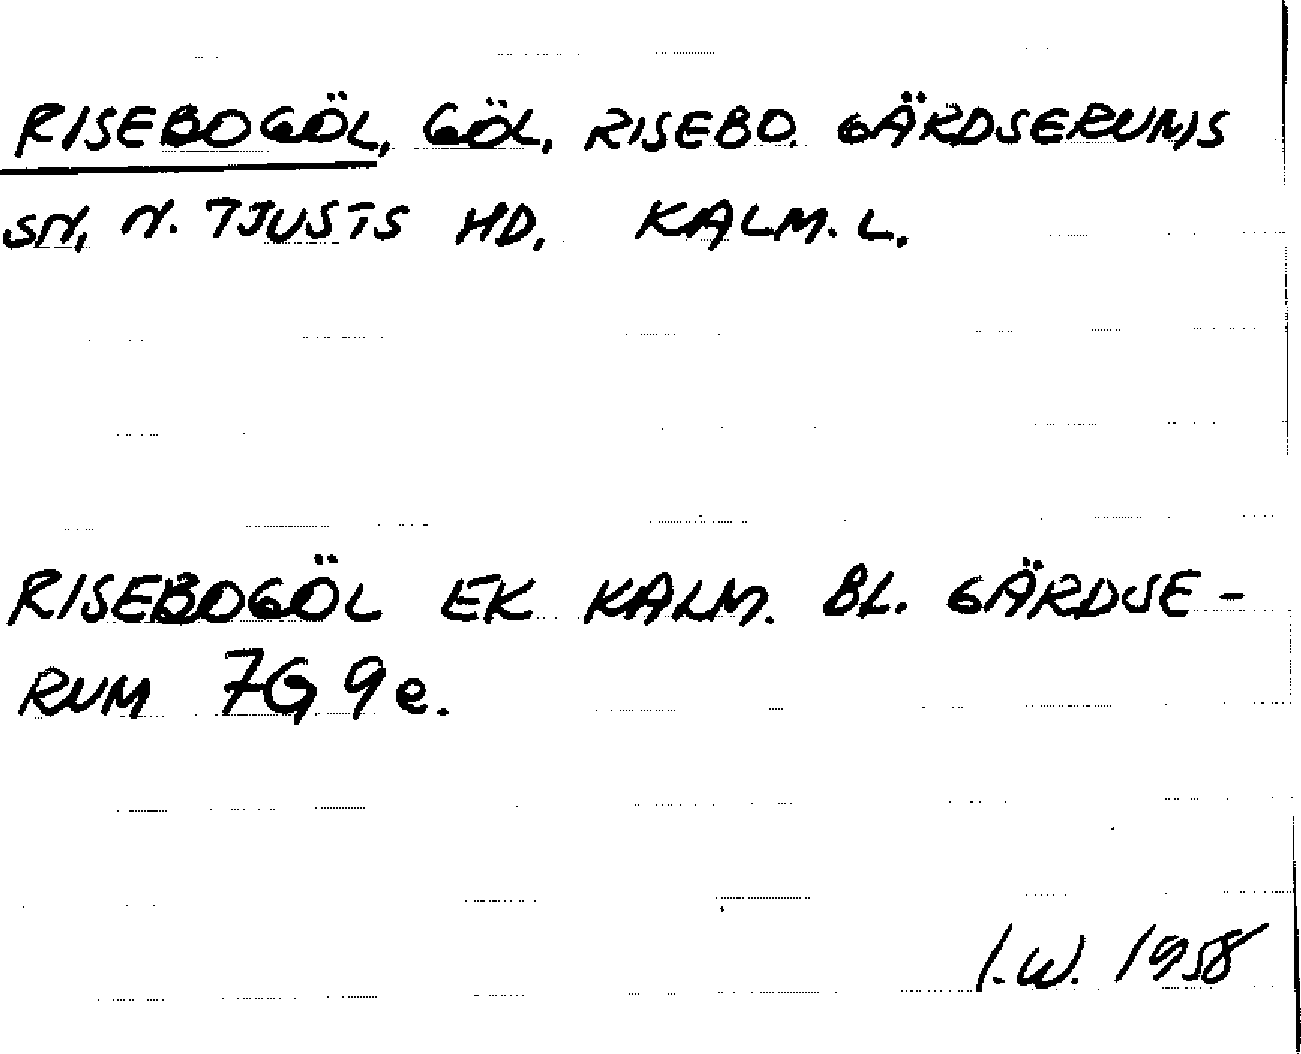 RISEBOGÖL, GÖL, RISEBO. GÄRDSERUMS
SN, N. TJUSTS HD. KALM. L.
RISEBOGÖL EK KALM. BL. GÄRDSE-
RUM 7G 9e.
I.W. 1958